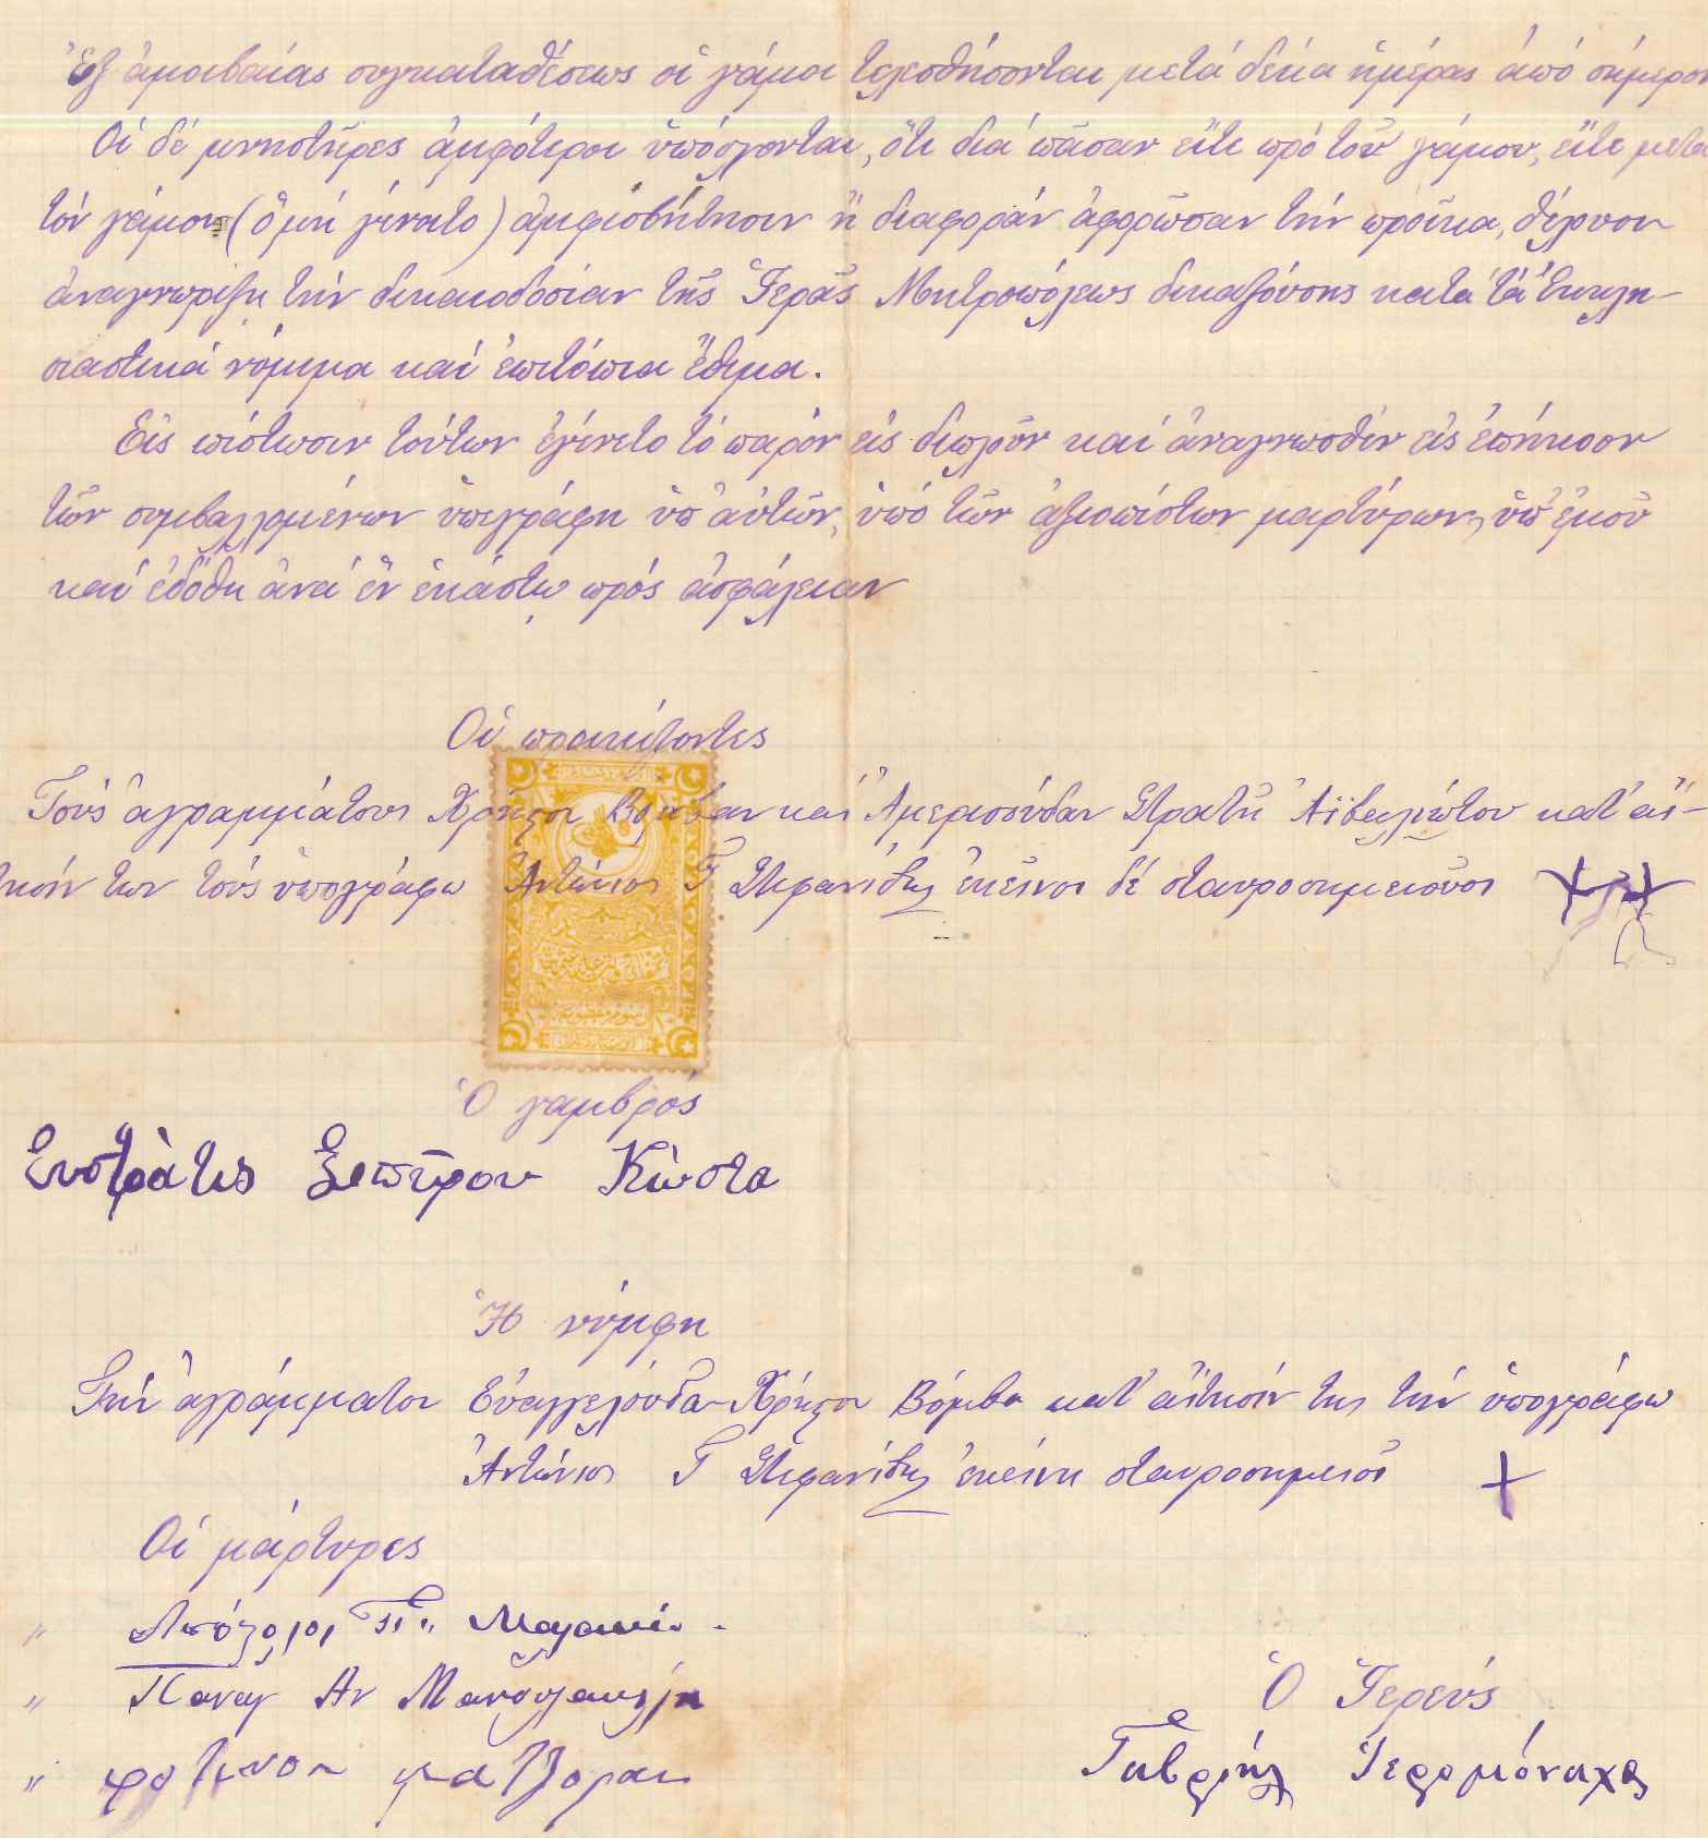 Ἐξ ἀμοιβαίας συγκαταθέσεως οἱ γάμοι τελεσθήσονται μετά δέκα ἡμέρας ἀπό σήμερον
Οἱ δέ μνηστῆρες ἀμφότεροι ὑπόσχονται, ὅτι διά πᾶσαν εἴτε πρό τοῦ γάμου, εἴτε μετά
τόν γάμον (ὅ μή γένοιτο) ἀμφισβήτησιν ἤ διαφοράν ἀφορῶσαν τήν προῖκα, θέλουσιν
ἀναγνωρίζῃ τήν δικαιοδοσίαν τῆς Ἱερᾶς Μητροπόλεως δικαζούσης κατά τά ἐκκλη-
σιαστικά νόμιμα καί ἐπιτόπια ἔθιμα.
Εἰς πίστωσιν τούτων ἐγένετο τό παρόν εἰς διπλοῦν καί ἀναγνωσθέν εἰς ἐπήκοον
τῶν συμβαλλομένων ὑπεγράφη ὑπ' αὐτῶν, ὑπό τῶν ἀξιοπίστων μαρτύρων, ὑπ' ἐμοῦ
καί ἐδόθη ἀνά ἕν ἑκάστῳ πρός ἀσφάλειαν
Οἱ προικίζοντες
Τούς ἀγραμμάτους Χρῆστον Βόμβαν καί Ἀμερισούδαν Στρατῆ Ἀϊβαλιώτου κατ' αἴ-
τησίν των τούς ὑπογράφω Ἀντώνιος Γ Στεφανίδης ἐκεῖνοι δέ σταυροσημειοῦσι
Ὁ γαμβρός
Ευστράτις Σπύρου Κώστα
Ἡ νύμφη
Τήν ἀγράμματον Εὐαγγελούδα Χρήστου Βόμβα κατ' αἴτησίν της τήν ὑπογράφω
Ἀντώνιος Γ Στεφανίδης ἐκείνη σταυροσημειοῖ
Οἱ μάρτυρες
" Απόστολος Π.
" Παναγ Αν
" φοτινον
Ὁ Ἱερεύς
Γαβριήλ Ἱερομόναχος